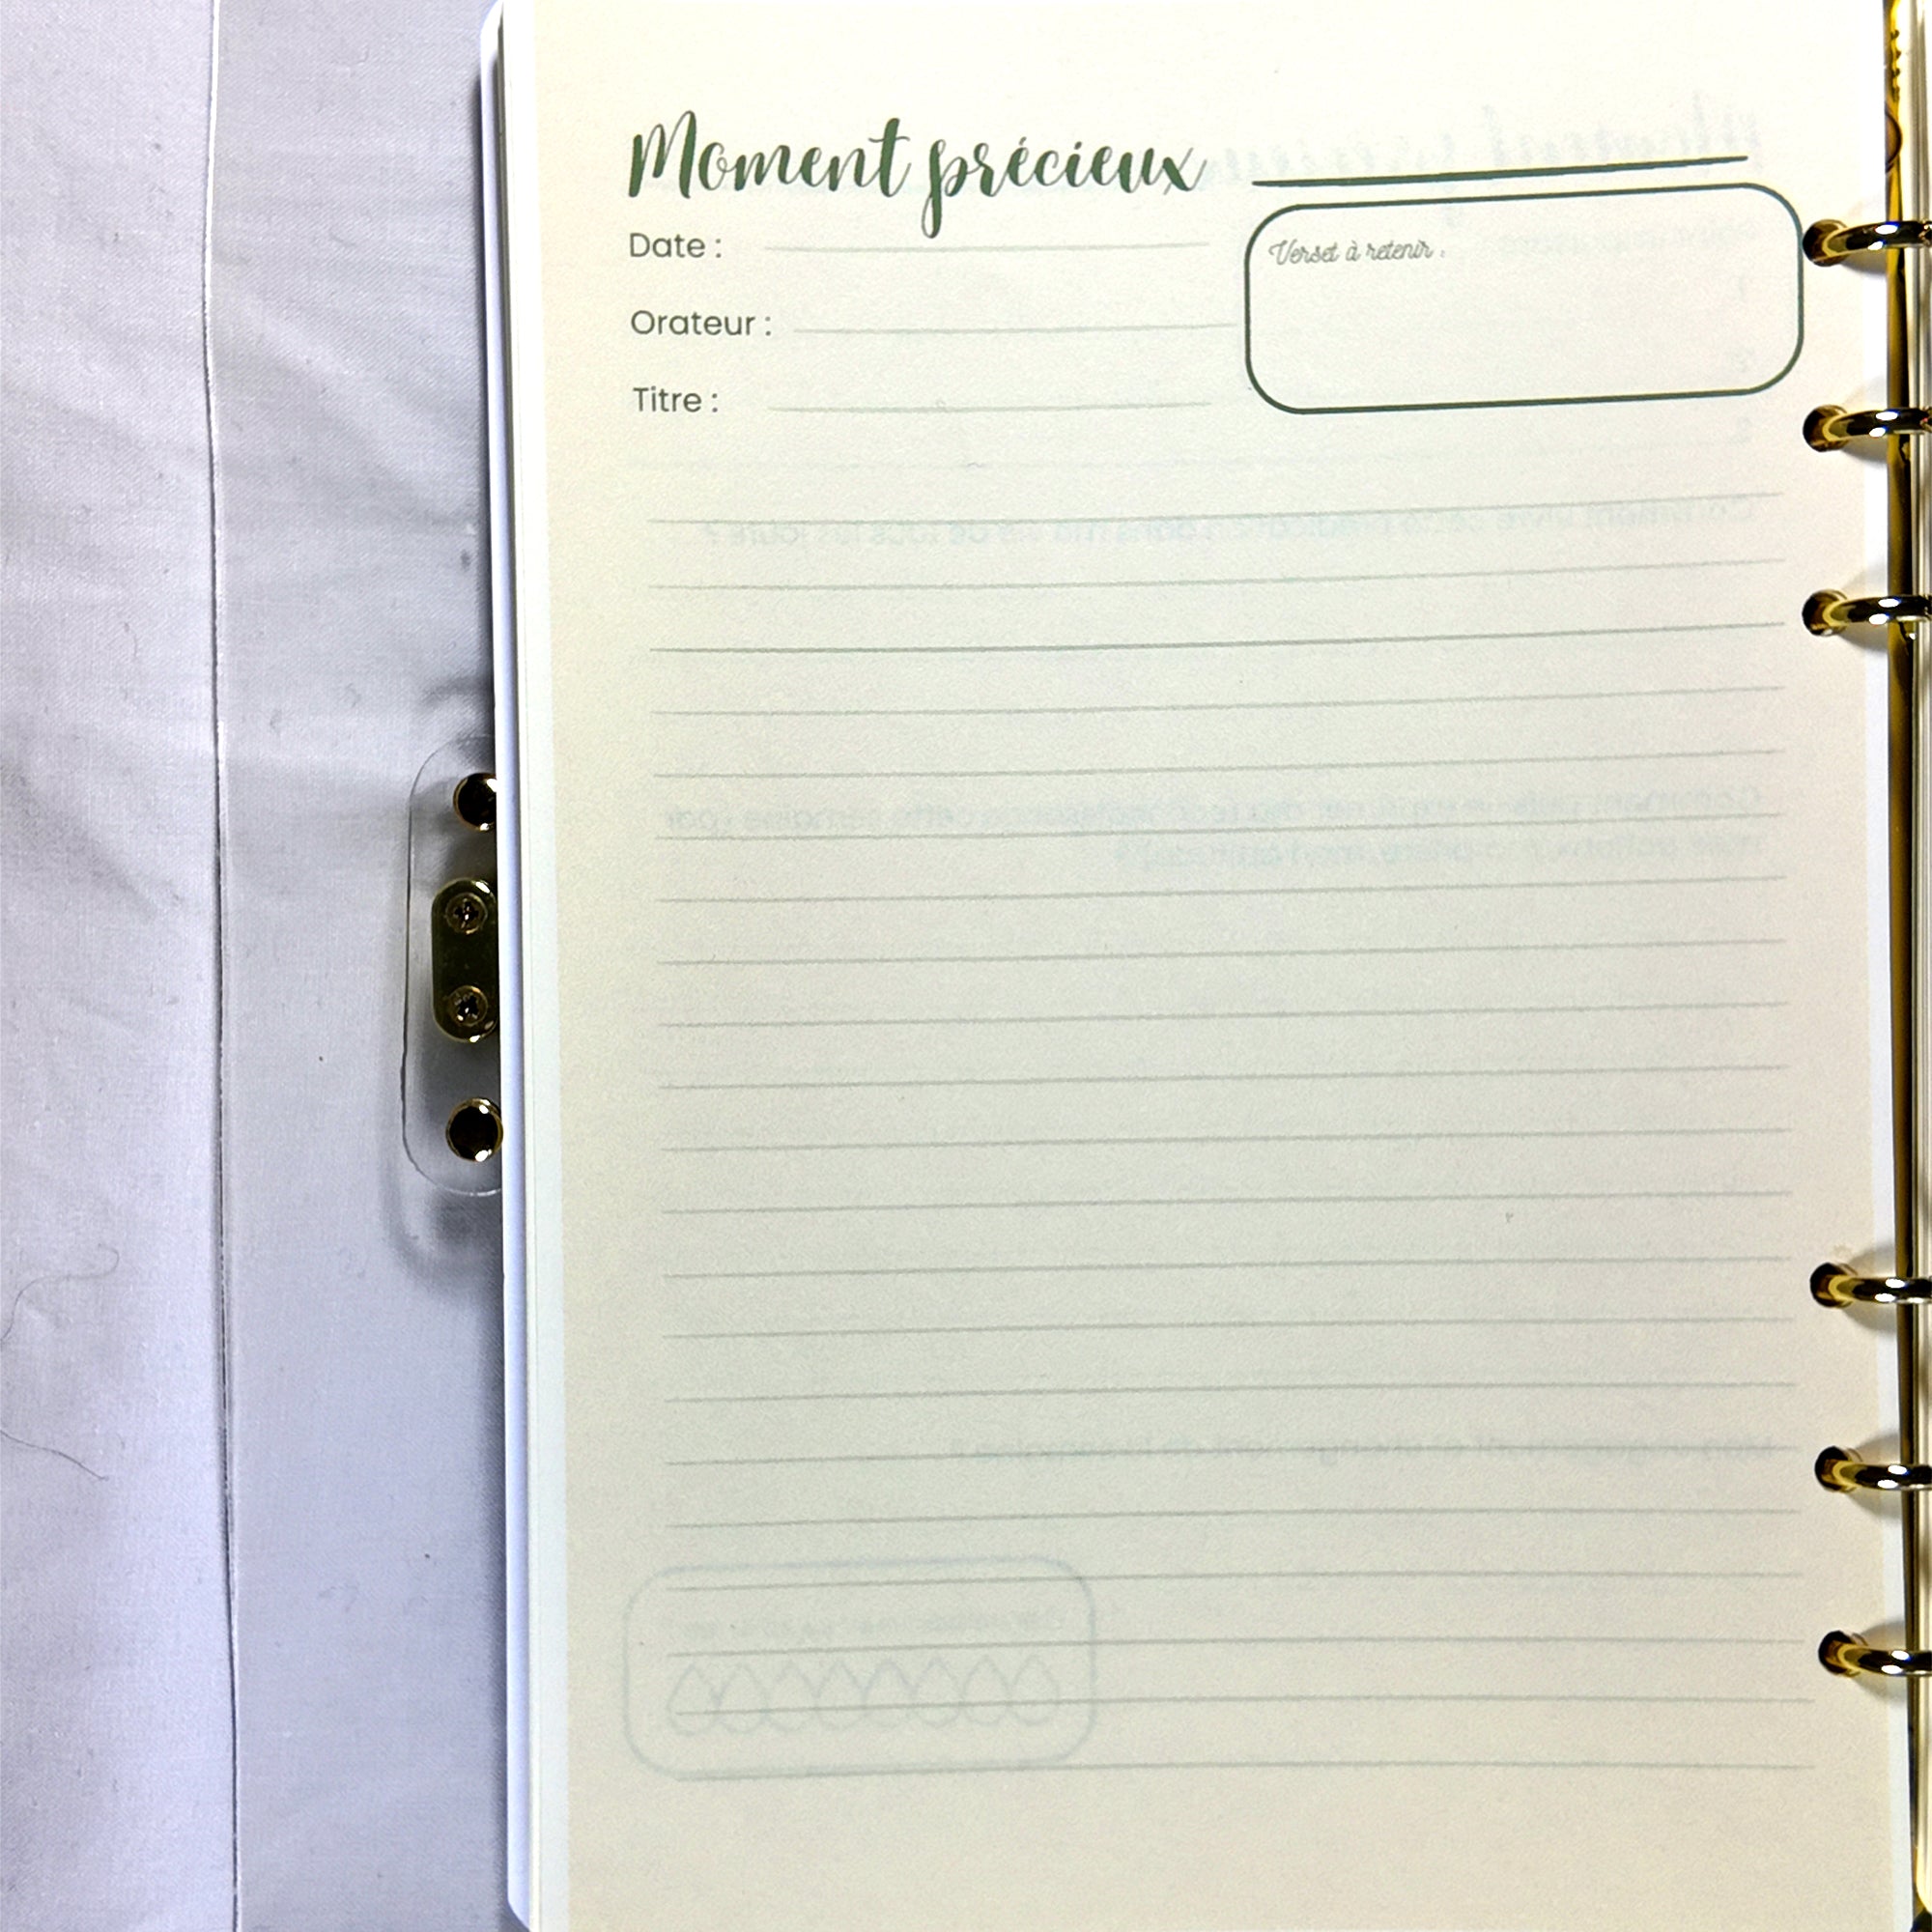 Moment précieux
Date :
Orateur :
Titre :
Verset à retenir :